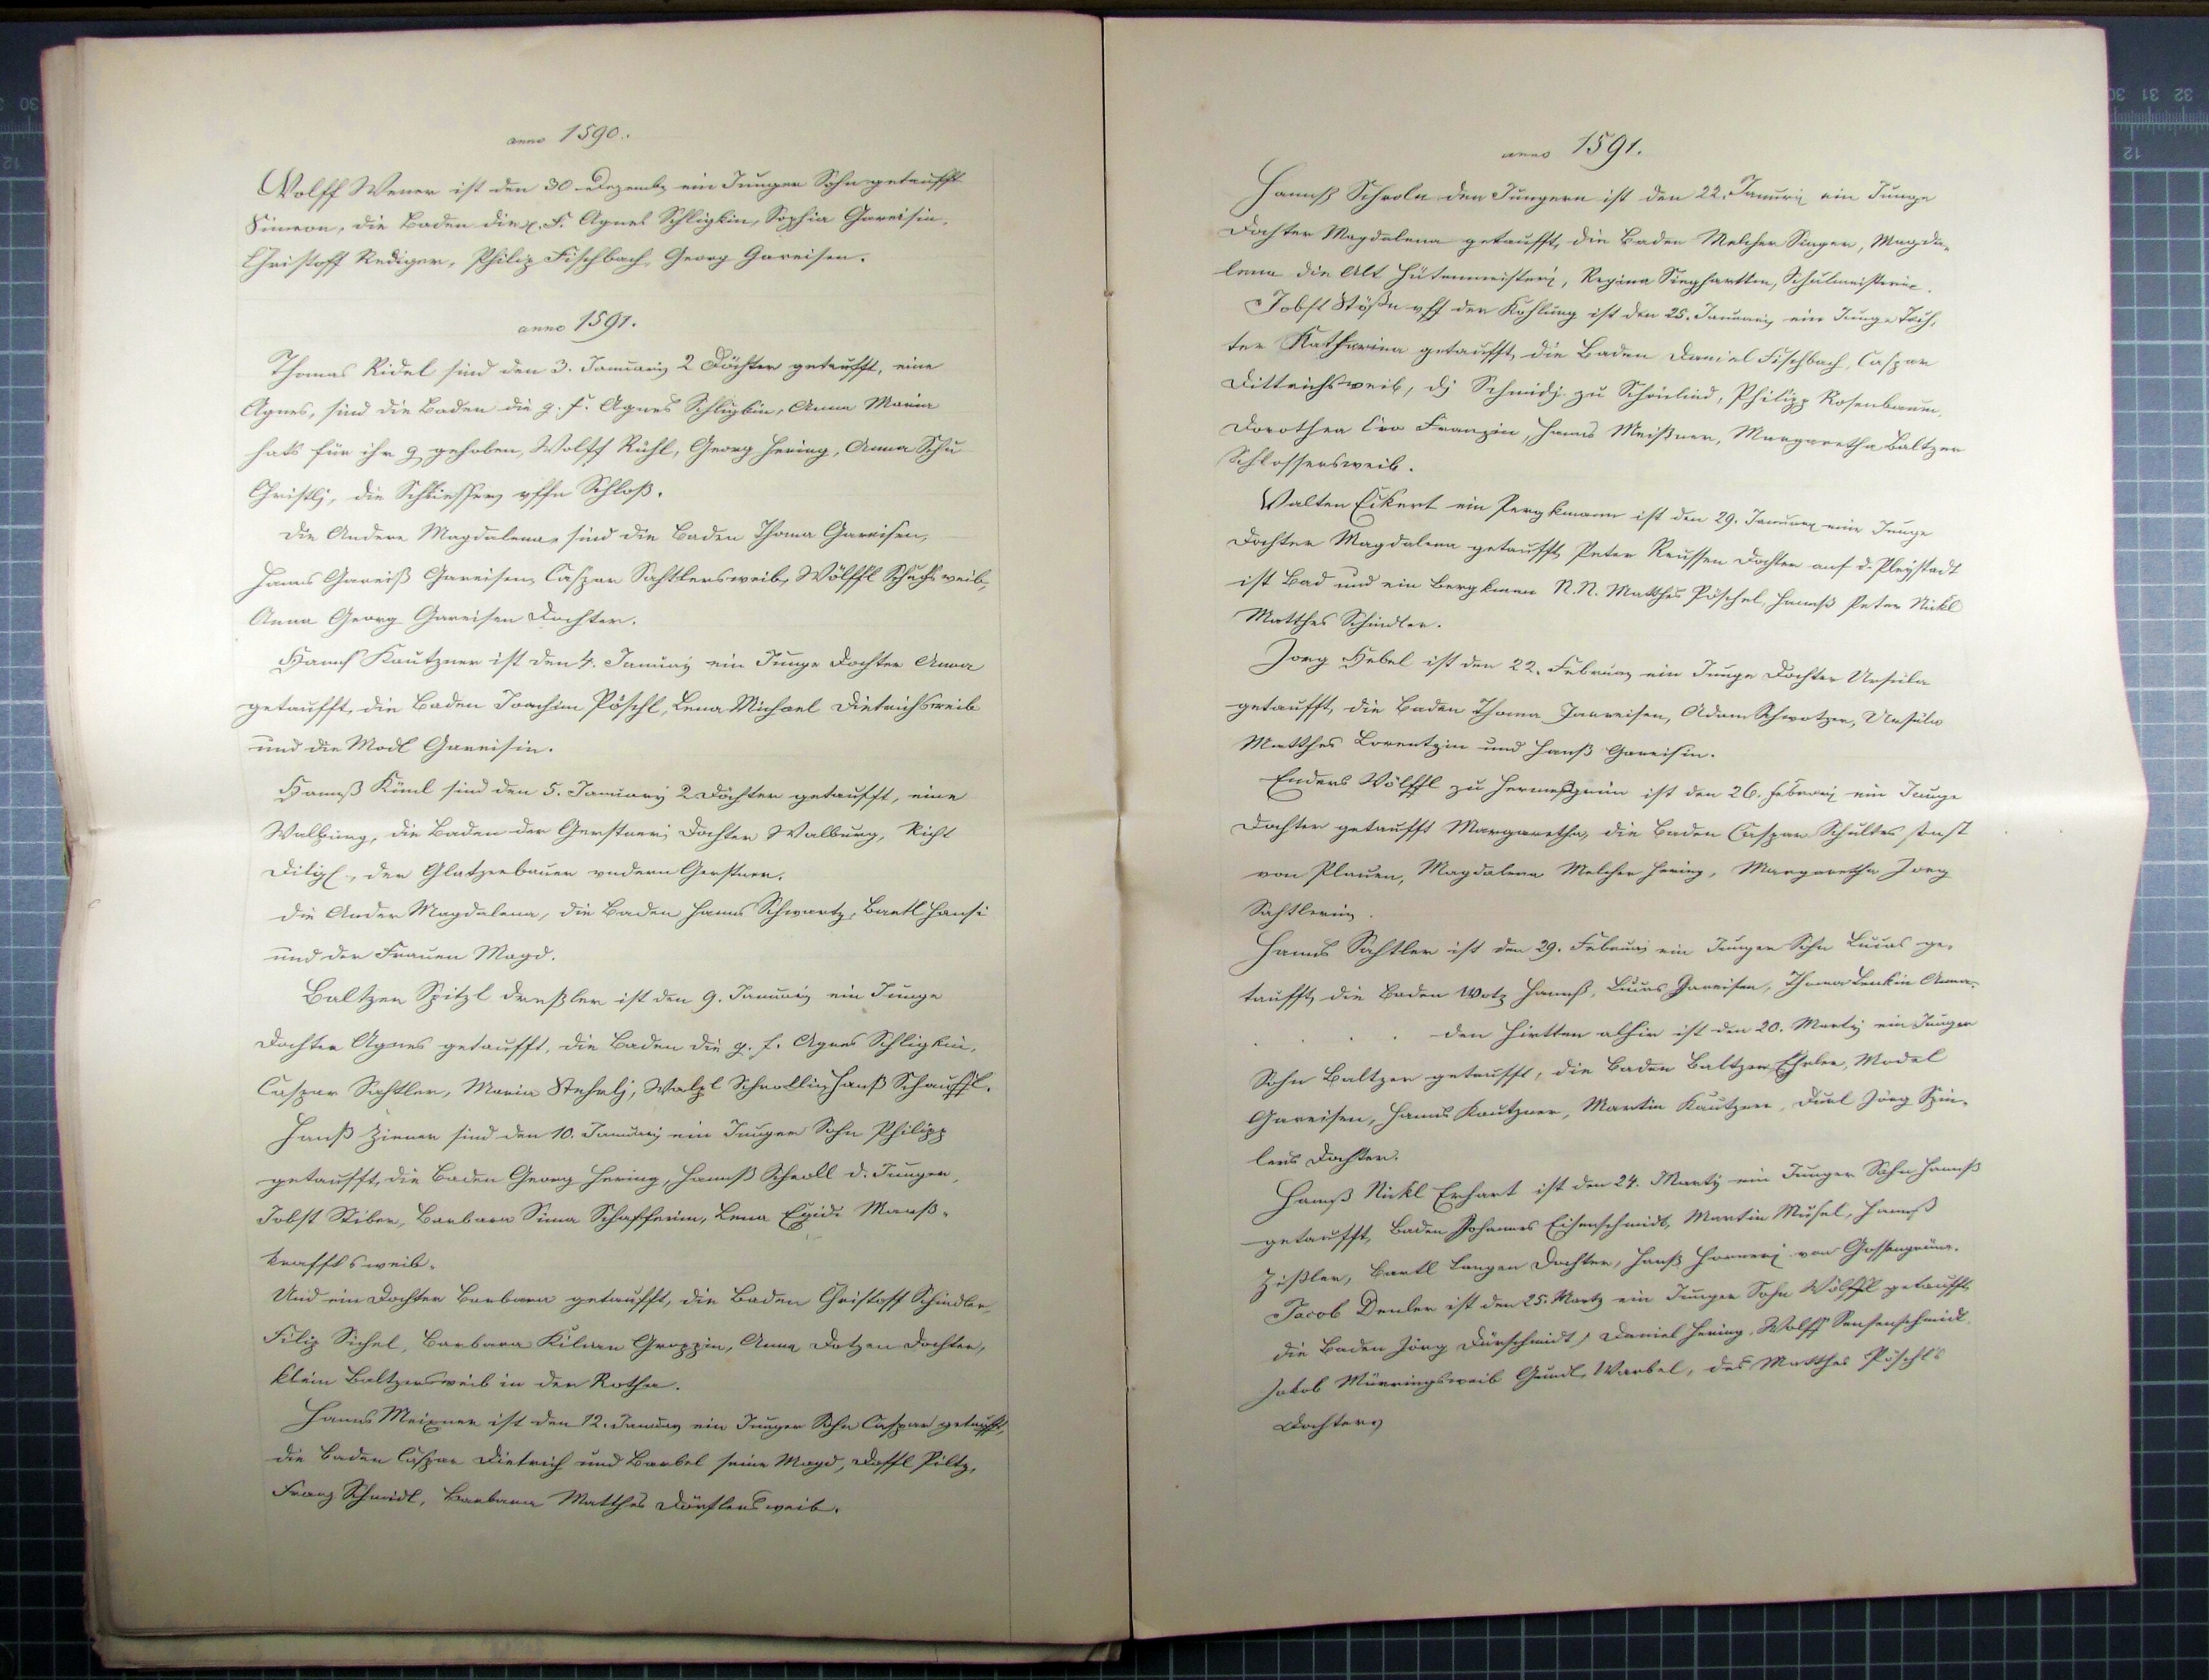 anno 1590.
Wolff Wener ist den 30 Dezemb. ein Junger Sohn getaufft
Simeon, die Baden die g. F. Agnes Schligkin, Sophia Gareisin,
Christoff Rediger, Philip Fischbach, Georg Gareisen.
anno 1591.
Thomas Ridel sind den 3. Januarij 2 Döchter getaufft, eine
Agnes, sind die Baden die g. f. Agnes Schligkin, Anna Maria
hats für ihr g. gehoben, Wolff Rühl, Georg Hering, Anna Schu
Christlj, die Schliesserj uffn Schloß.
Die Andere Magdalena, sind die Baden Thoma Gareisen,
Hanns Gareiß Gareisen, Caspar Sahtlersweib, Wölffl Schuchsweib,
Anna Georg Gareisen Dochter.
Hannß Kautzner ist den 4. Januarij ein Junge Dochter Anna
getaufft, die Baden Joachim Pöschl, Lena Michael Dietrichsweib
und die Madl Gareisin.
Hannß Küml sind den 5. Januarij 2 Döchter getaufft, eine
Walburg, die Baden der Gerstnerj Dochter Walburg, Richt
der Glatzenbauer undern Gerstner.
Die Ander Magdalena, die Baden Hanns Schwartz, Bartl Hansi
und der Frauen Magd.
Baltzer Spitzl Dreßler ist den 9. Januarij ein Junge
Dochter Agnes getaufft, die Baden die g. f. Agnes Schligkin,
Caspar Sahtler, Maria Stehrlj, Walpl Schrollin, Hanß Schauffl.
Hanß Ziener sind den 10. Januarij ein Junger Sohn Philipp
getaufft, die Baden Georg Hering, Hannß Schroll d. Junger,
Jobst Stiber, Barbara Sima Schafferin, Lena Egidi Manß-
kraffts weib.
Und ein Dochter Barbara getaufft, die Baden Christoff Schindler,
Filip Sichel, Barbara Kilman Groppin, Anna Dotzen Dochter,
klein Baltzersweib in der Rotha.
Hanns Meixner ist den 12. Januarj ein Junger Sohn Caspar getaufft,
die Baden Caspar Dietrich und Barbel seine Magd, Doffl Piltz,
Franz Schmidt, Barbara Matthes Dörflers weib.
anno 1591.
Hannß Schroln den Jungern ist den 22. Januarij ein Junge
Dochter Magdalena getaufft, die Baden Melcher Singer, Magda-
lena die Alt Hütenmeisterj, Regina Sieghartten, Schulmeisterin.
Jobst Stößn uff der Kohlung ist den 25. Januarij ein Junge Toch-
ter Katharina getaufft, die Baden Daniel Fischbach, Caspar
Dittrichsweib, dj Schmidj zu Schönlind, Philipp Rosenbaum,
Dorothea Cro Franzin, Hanns Meißner, Margaretha Baltzer
Schlossersweib.
Valten Eckert ein Pergkmann ist den 29. Januarj eine Junge
Dochter Magdalena getaufft, Peter Reussen Dochter auf d. Pleystadt
ist Bad und ein Bergkman N. N. Matthes Pöschel, Hannß Peter Nickl
Matthes Schindler.
Jorg Hebel ist den 22. Februarj ein Junge Dochter Ursula
getaufft, die Baden Thoma Garreisen, Adam Schwotzer, Ursula
Matthes Lorentzin und Hanß Gareisin.
Enders Wölffl zu Hermeßgrün ist den 26. Februarj ein Junge
Dochter getaufft Margaretha, die Baden Caspar Schultes sonst
von Plauen, Magdalena Melcher Hering, Margaretha Jorg
Sahtlerin.
Hannß Sahtler ist den 29. Februarj ein Junger Sohn Lucas ge-
taufft, die Baden Wotz Hannß, Lucas Gareisen, Thoma Lenkin Anna.
. . . den Hirtten alhie ist den 20. Martij ein Junger
Sohn Baltzer getaufft, die Baden Baltzer Ehrler, Madel
Gareisen, Hanns Kautzner, Martin Kautzner, Durl Jörg Spin-
lers Dochter.
Hannß Nickl Erhart ist den 24. Martij ein Junger Sohn Hannß
getaufft, Baden Johannes Eisenschmidt, Martin Musel, Hannß
Zißler, Bartl Langen Dochter, Hanß Hornerj von Gossengrün.
Jacob Denler ist den 25. Martj ein Junger Sohn Wölffl getaufft,
die Baden Jörg Dürschmidt, Daniel Hering, Wolff Sensenschmidt,
Jakob Mürringsweib Gundl, Warbel, des Matthes Pöschl's
Dochter